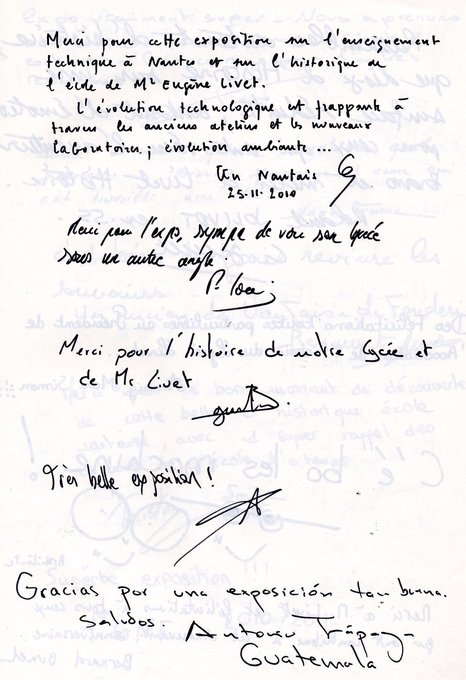 Merci pour cette exposition sur l'enseignement
technique à Nantes et sur l'historique de
l'école de Mr Eugène Livet.
L'évolution technologique est frappante à
travers les anciens ateliers et les nouveaux
laboratoires ; évolution ambiante ...
Un Nantais
25-11-2010
Merci pour l'expo, sympa de voir son lycée
sous un autre angle.
Merci pour l'histoire de notre lycée et
de Mr Livet
Très belle exposition !
Gracias por una exposición tan buena.
Saludos.
Guatemala